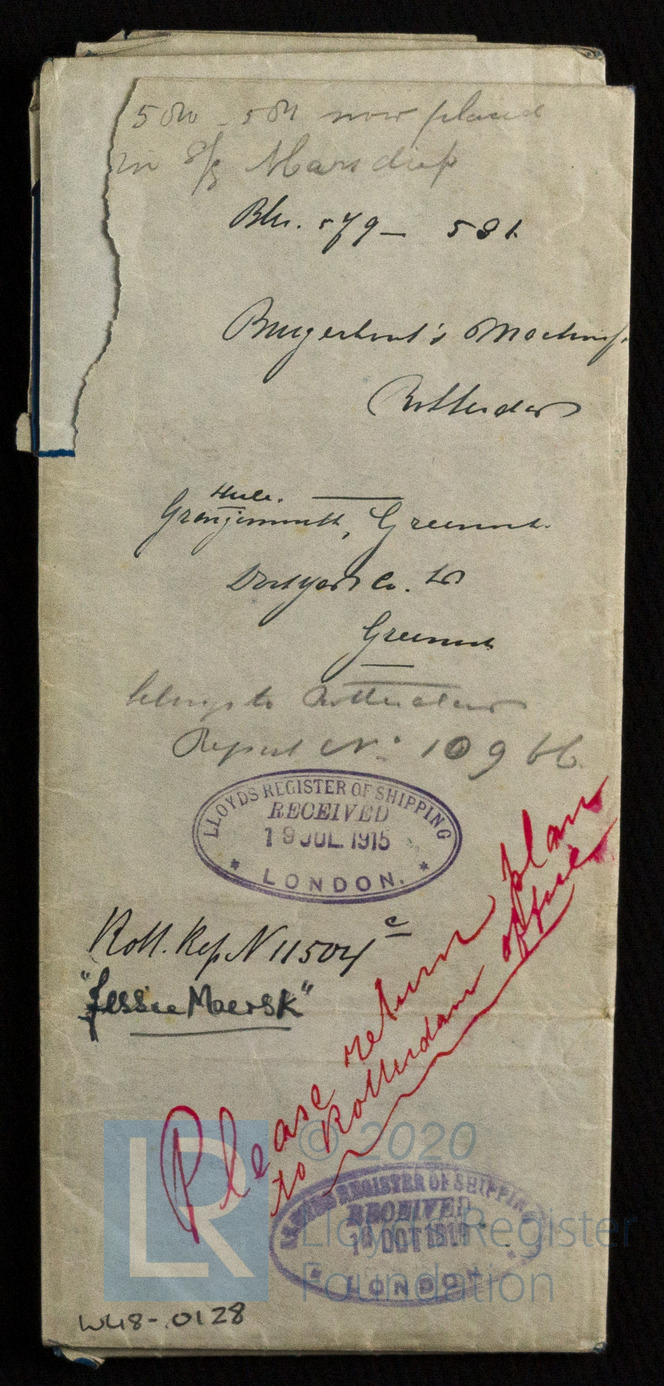 580 - 581 now placed
in S/S Marsdiep
Blrs. 579 - 581.
Burgerhout's Machinef.
Rotterdam
Hull.
Grangemouth, Greenock
Dockyard Co. Ld
Greenock
belongs to Rotterdam
Report No. 10966.
LLOYDS REGISTER OF SHIPPING
RECEIVED
19 JUL 1915
* LONDON. *
Rott. Rep. N 11504 c
"Jessie Maersk"
Please return plan
to Rotterdam office
© 2020
LR
Lloyd's Register
Foundation
LLOYDS REGISTER OF SHIPPING
RECEIVED
OCT
LONDON
W418-.0128